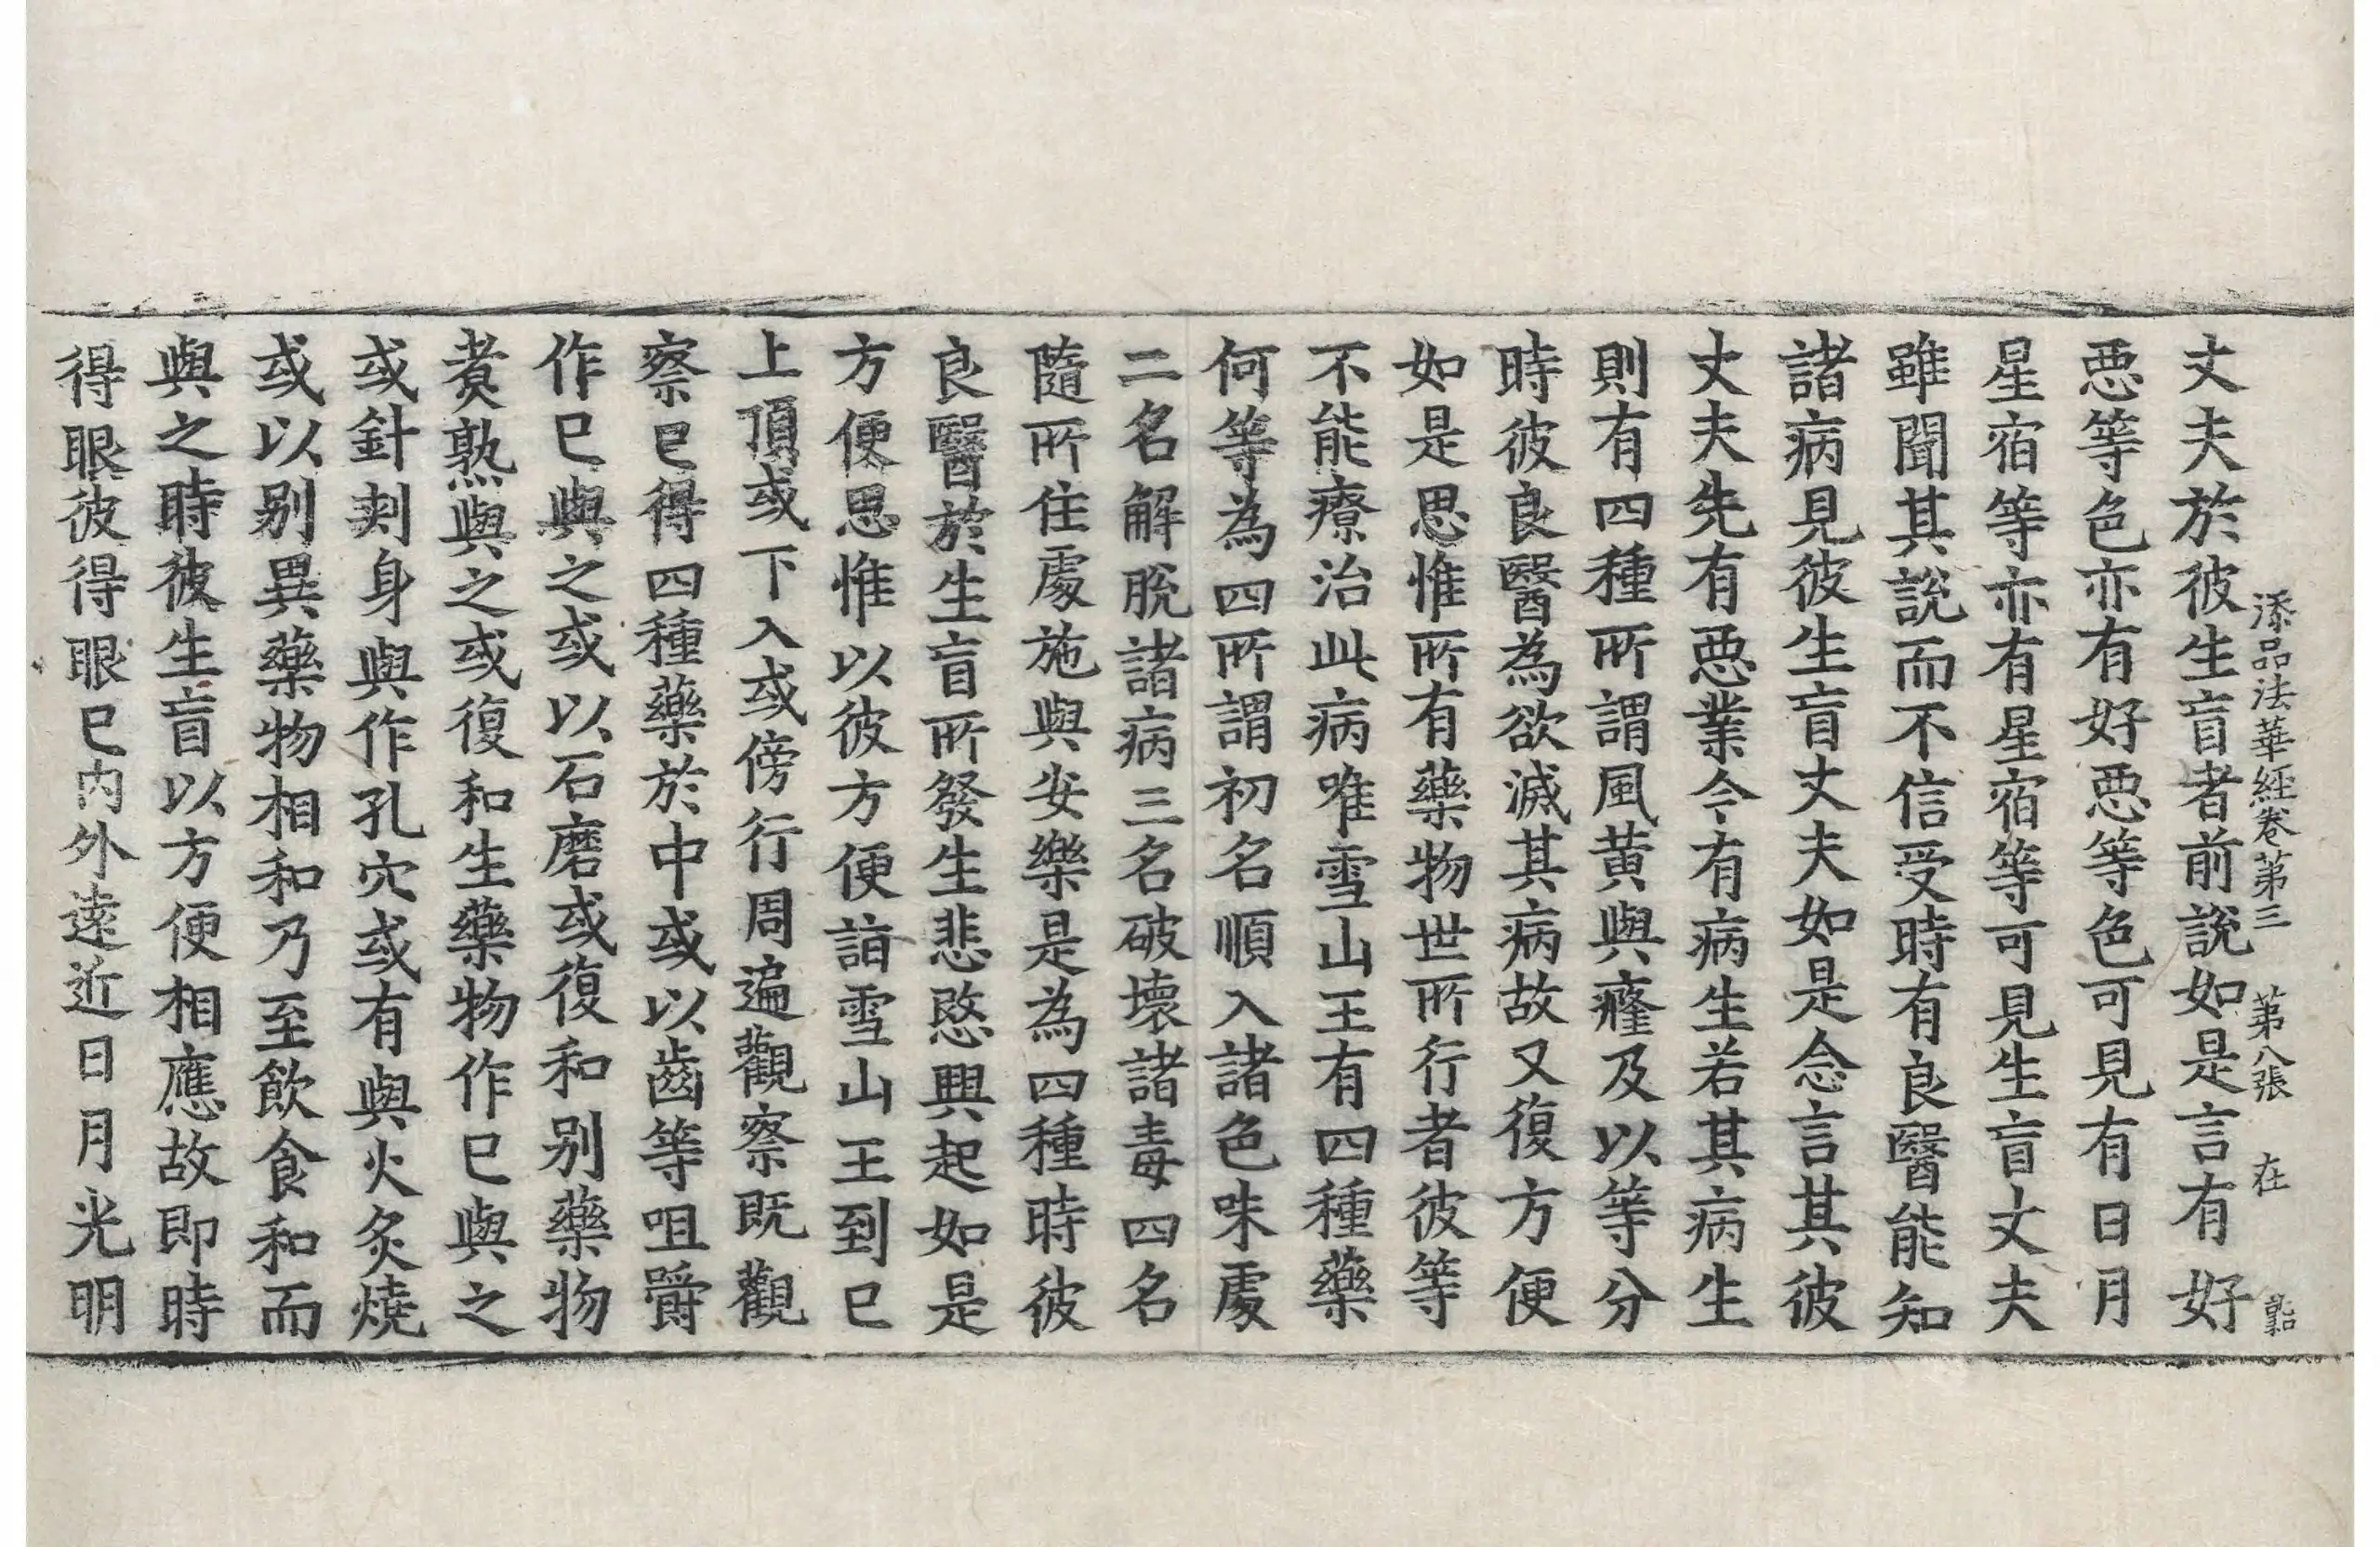 添品法華經卷第三 第八張 在
丈夫於彼生盲者前說如是言有好
惡等色亦有好惡等色可見有日月
星宿等亦有星宿等可見生盲丈夫
雖聞其說而不信受時有良醫能知
諸病見彼生盲丈夫如是念言其彼
丈夫先有惡業今有病生若其病生
則有四種所謂風黃與癊及以等分
時彼良醫為欲滅其病故又復方便
如是思惟所有藥物世所行者彼等
不能療治此病唯雪山王有四種藥
何等為四所謂初名順入諸色味處
二名解脫諸病三名破壞諸毒四名
隨所住處施與安樂是為四種時彼
良醫於生盲所發生悲愍興起如是
方便思惟以彼方便詣雪山王到已
上頂或下入或傍行周遍觀察既觀
察已得四種藥於中或以齒等咀嚼
作已與之或以石磨或復和別藥物
煑熟與之或復和生藥物作已與之
或針刾身與作孔穴或有與火炙燒
或以別異藥物相和乃至飲食和而
與之時彼生盲以方便相應故即時
得眼彼得眼已內外遠近日月光明